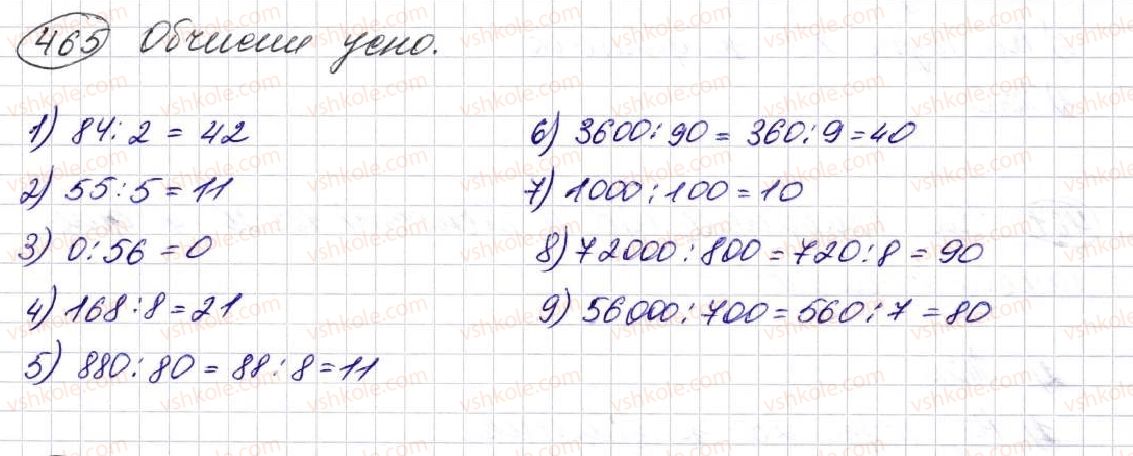 465 Обчисли усно.
1) 84 : 2 = 42
2) 55 : 5 = 11
3) 0 : 56 = 0
4) 168 : 8 = 21
5) 880 : 80 = 88 : 8 = 11
6) 3600 : 90 = 360 : 9 = 40
7) 1000 : 100 = 10
8) 72000 : 800 = 720 : 8 = 90
9) 56000 : 700 = 560 : 7 = 80
vshkole.com